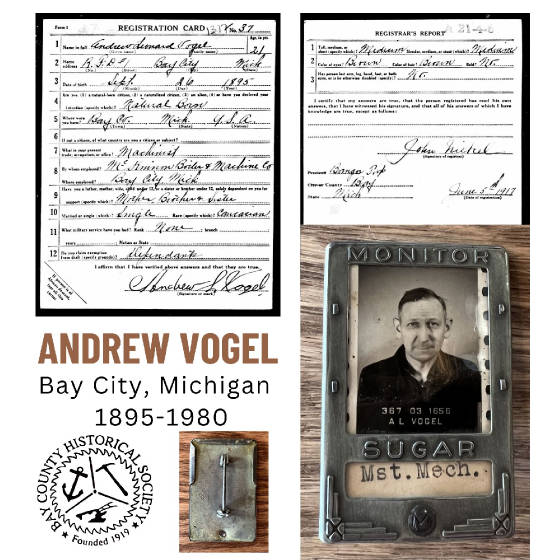 Form 1 REGISTRATION CARD No. 37
1 Name in full Andrew Leonard Vogel Age, in yrs. 21
2 Home address R.F.D. #1 Bay City Mich
3 Date of birth Sept. 26 1895
4 Are you (1) a natural-born citizen, (2) a naturalized citizen, (3) an alien, (4) or have you declared your intention (specify which)? Natural Born
5 Where were you born? Bay Co. Mich. U.S.A.
6 If not a citizen, of what country are you a citizen or subject?
7 What is your present trade, occupation, or office? Machinist
8 By whom employed? Boiler & Machine Co
Where employed? Bay City Mich
9 Have you a father, mother, wife, child under 12, or a sister or brother under 12, solely dependent on you for support (specify which)? Mother Brother & Sister
10 Married or single (which)? Single Race (specify which)? Caucasian
11 What military service have you had? Rank None branch
years Nation or State
12 Do you claim exemption from draft (specify grounds)? Dependants
I affirm that I have verified above answers and that they are true.
Andrew L. Vogel
(Signature or mark)
21-4-6
REGISTRAR'S REPORT
1 Tall, medium, or short (specify which)? Medium Slender, medium, or stout (which)? Medium
2 Color of eyes? Brown Color of hair? Brown Bald? No.
3 Has person lost arm, leg, hand, foot, or both eyes, or is he otherwise disabled (specify)? No.
I certify that my answers are true, that the person registered has read his own answers, that I have witnessed his signature, and that all of his answers of which I have knowledge are true, except as follows:
John Nickel
(Signature of registrar)
Precinct Bangor Twp
City or County Bay
State Mich
June 5th 1917
(Date of registration)
MONITOR
367 03 1656
A L VOGEL
SUGAR
Mst. Mech.
M
ANDREW VOGEL
Bay City, Michigan
1895-1980
BAY COUNTY HISTORICAL SOCIETY
Founded 1919